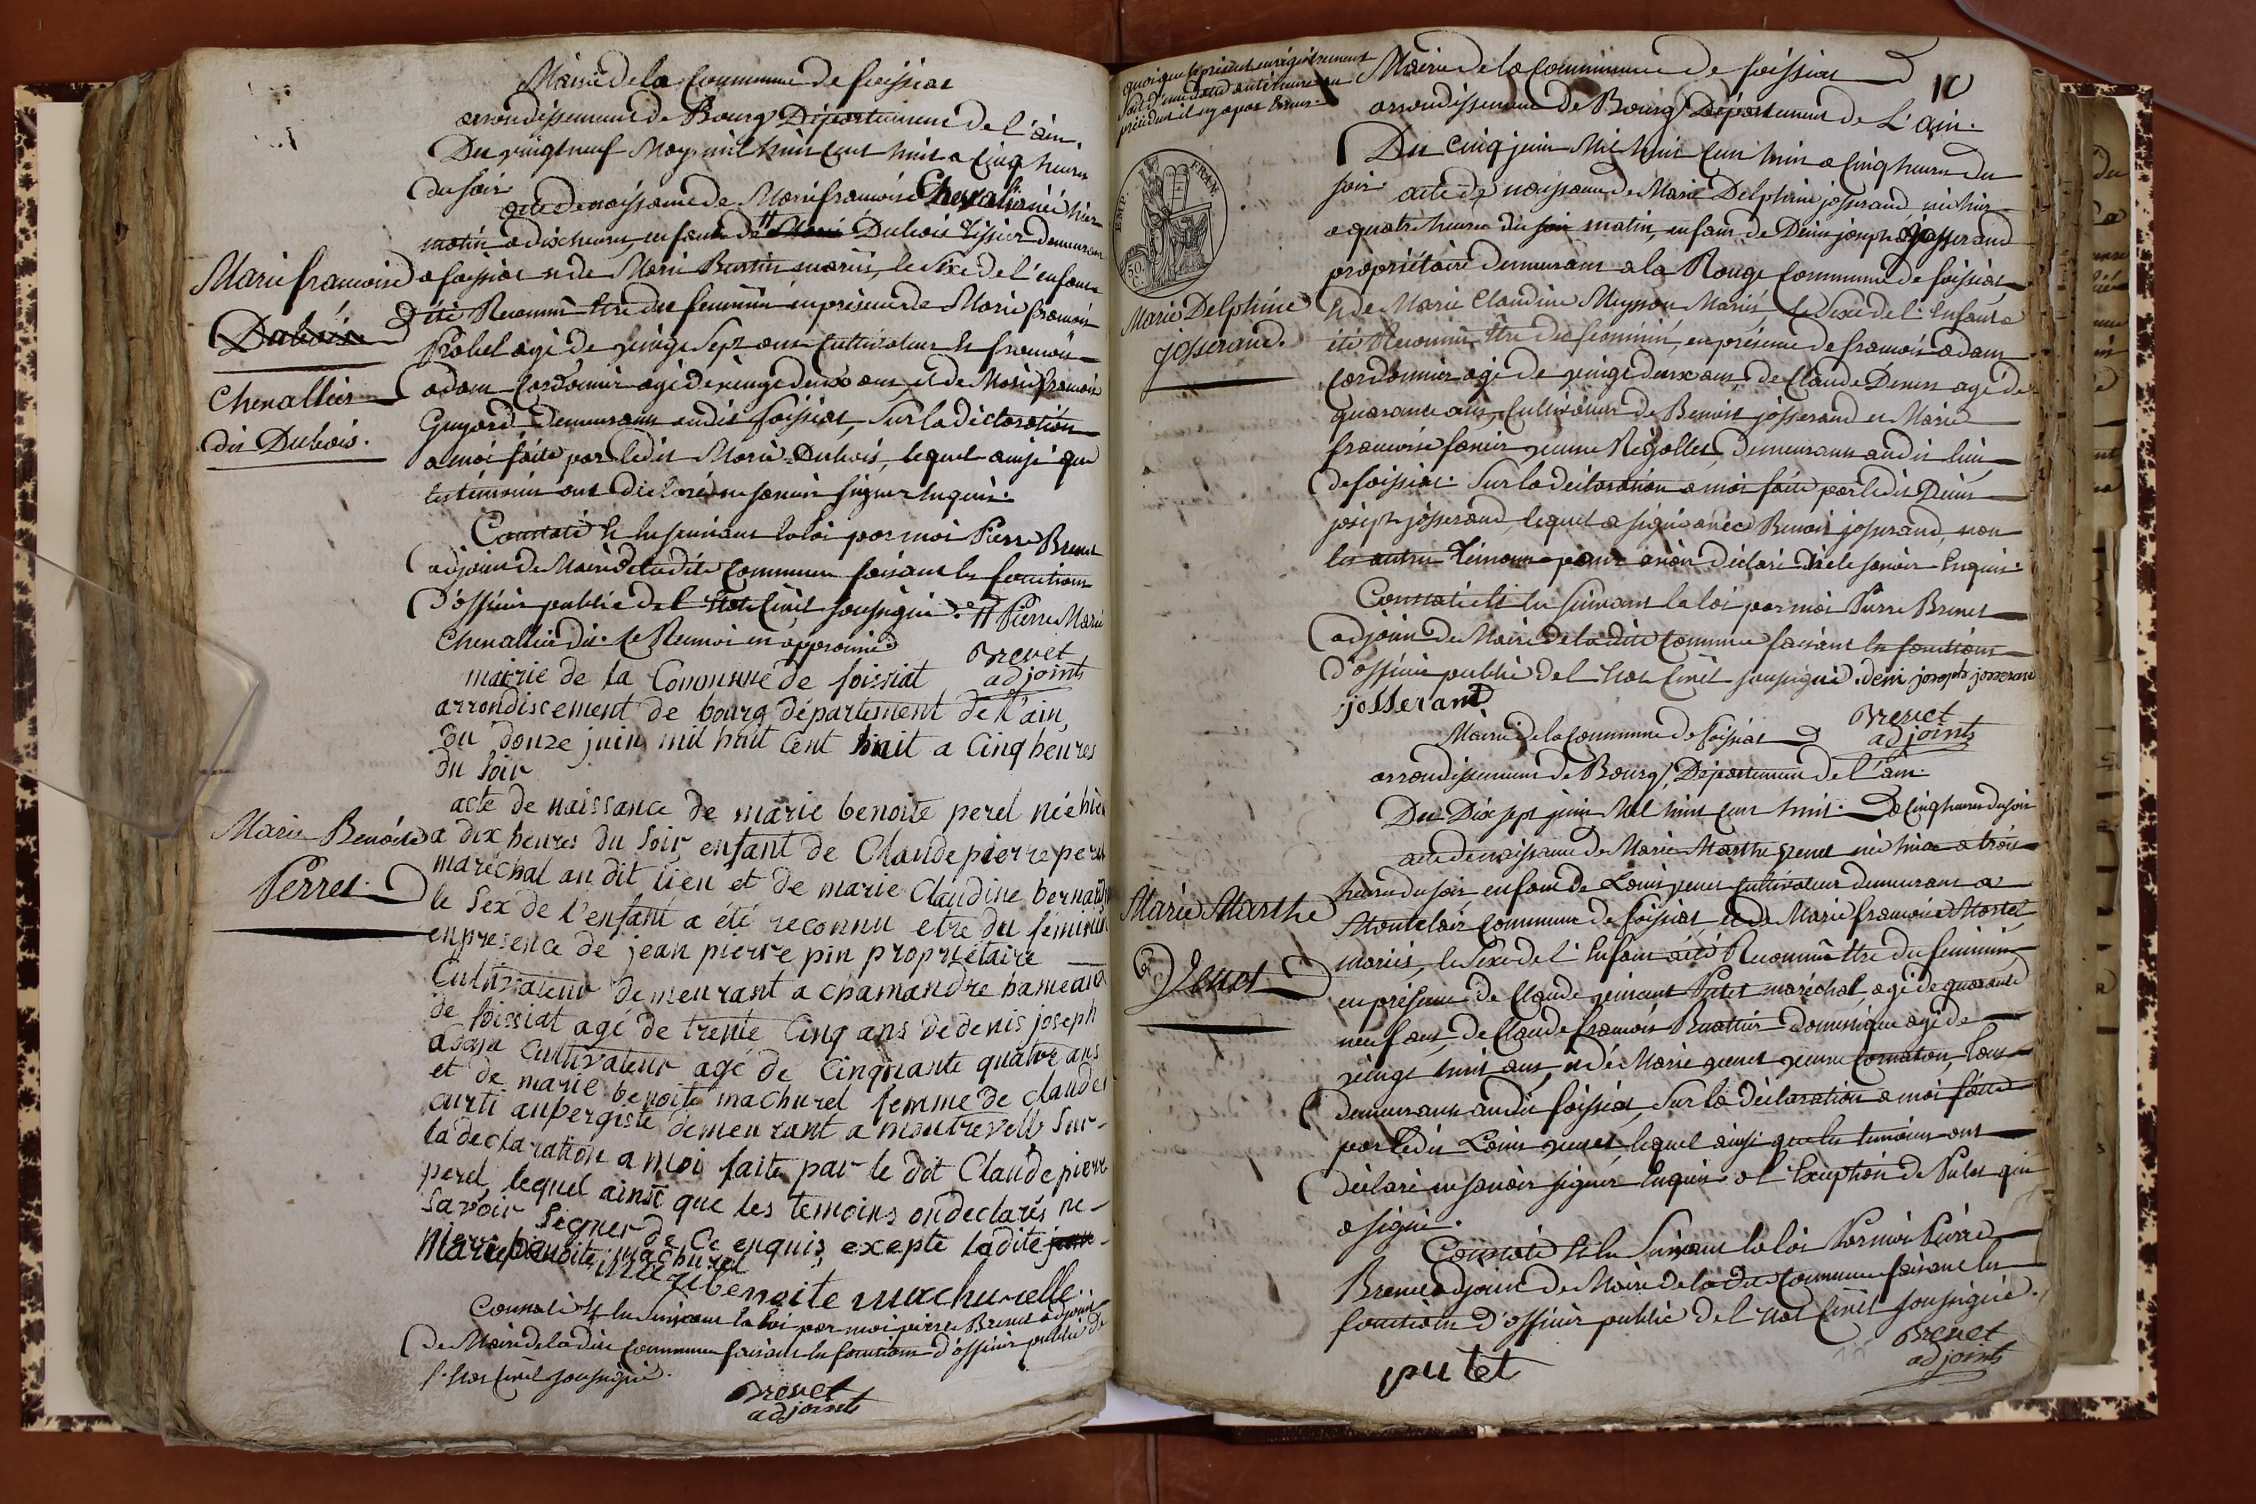 Mairie de la Commune de foissiat
arrondissement de Bourg Département de l'ain.
Du vingt neuf May mil huit cent huit a cinq heures
du soir
acte de naissance de Marie francoise Chevalier née hier
matin a dix heures, enfant de # Marie Dubois Tissier demeurant
a foissiat et de Marie Burtin mariés, le Sexe de l'enfant a
Marie francoise
Dubois
Chevallier
dit Dubois.
été Reconnu être du feminin en présence de Marie francois
Probel agé de vingt sept ans Cultivateur de francois
adam Cordonnier agé de vingt deux ans et de Marie francoise
Guyard demeurants audit foissiat, Sur la déclaration
a moi faite par ledit Marie Dubois, lequel ainsi que
les témoins ont déclaré ne savoir signer enquis.
Constaté et lu suivant la loi par moi Pierre Brevet
adjoint de Maire de ladite Commune faisant les fonctions
d'officier public de l'Etat Civil soussigné. # Pierre Marie
Chevallier dit. le Renvoi en approuvé
Brevet
adjoint
mairie de la Commune de foissiat
arrondissement de bourg département de l'ain,
du douze juin mil huit cent huit a Cinq heures
du soir
acte de naissance de marie benoite perel née hier
Marie Benoite
Perret.
a dix heures du soir enfant de Claude pierre perel
maréchal au dit lieu et de marie Claudine bernard
le sex de l'enfant a été reconnu etre du féminin
en presence de jean pierre pin propriétaire
Cultivateur demeurant a chamandre hameaux
de foissiat agé de trente Cinq ans de denis joseph
adam Cultivateur agé de Cinquante quatre ans
et de marie benoite machurel femme de claude
curti aubergiste demeurant a montrevelle Sur
la déclaration a moi faite par le dit Claude pierre
perel lequel ainsi que les temoins ondeclarés ne
savoir signer de Ce enquis, excepte ladite
Marie benoite machurel
benoite machurelle
Constaté et lu suivant la loi par moi pierre Brevet adjoint
de Maire de ladite Commune faisant les fonctions d'officier public de
l'Etat Civil soussigné.
Brevet
adjoint
quoique le présent enregistrement
soit d'une date antérieure au
précédent il n'y a pas Erreur
10
Mairie de la Commune de foissiat
arrondissement de Bourg Département de L'ain.
Du Cinq juin Mil huit Cent huit a Cinq heures du
soir acte de naissance de Marie Delphine josserand, née hier
EMP. FRAN
50 C.
a quatre heures du soir matin, enfant de Denis joseph josserand
propriétaire demeurant a la Rouge Commune de foissiat
Marie Delphine
josserand.
et de Marie Claudine Meysson Mariés, le Sexe de l'Enfant a
été Reconnu être du feminin, en présence de francois adam
Cordonnier agé de vingt deux ans, de Claude Denis agé de
quarante ans Cultivateur de Benoit josserand et Marie
francoise veuve demeurants audit lieu
de foissiat. Sur la déclaration a moi faite par ledit Denis
joseph josserand, lequel a signé avec Benoit josserand, non
les autres Témoins pour avoir déclaré ne le savoir Enquis.
Constaté et lu suivant la loi par moi Pierre Brevet
adjoint de Maire de ladite Commune faisant les fonctions
d'officier public de l'Etat Civil soussigné. deni joseph josserand
josserand
Brevet
adjoint
Mairie de la Commune de foissiat
arrondissement de Bourg, Département de l'ain.
Du Dix sept juin Mil huit Cent huit. a Cinq heures du soir
acte de naissance de Marie Marthe venet née hier a trois
heures du soir, enfant de Louis venet Cultivateur demeurant a
Marie Marthe
Venet
Montclair Commune de foissiat, et de Marie francoise Morel
mariés, le Sexe de l'Enfant a été Reconnu être du feminin
en présence de Claude vincent Putet maréchal agé de quarante
neuf ans, de Claude francois Buattier domestique agé de
vingt huit ans, et de Marie venet veuve Cornaton, tous
demeurants audit foissiat, Sur la déclaration a moi faite
par ledit Louis venet, lequel ainsi que les temoins ont
déclaré ne savoir signer Enquis a l'Exception de Putet qui
a signé.
Constaté et lu Suivant la loi Par moi Pierre
Brevet adjoint de Maire de ladite Commune faisant les
fonctions d'officier public de l'Etat Civil soussigné.
Brevet
adjoint
putet